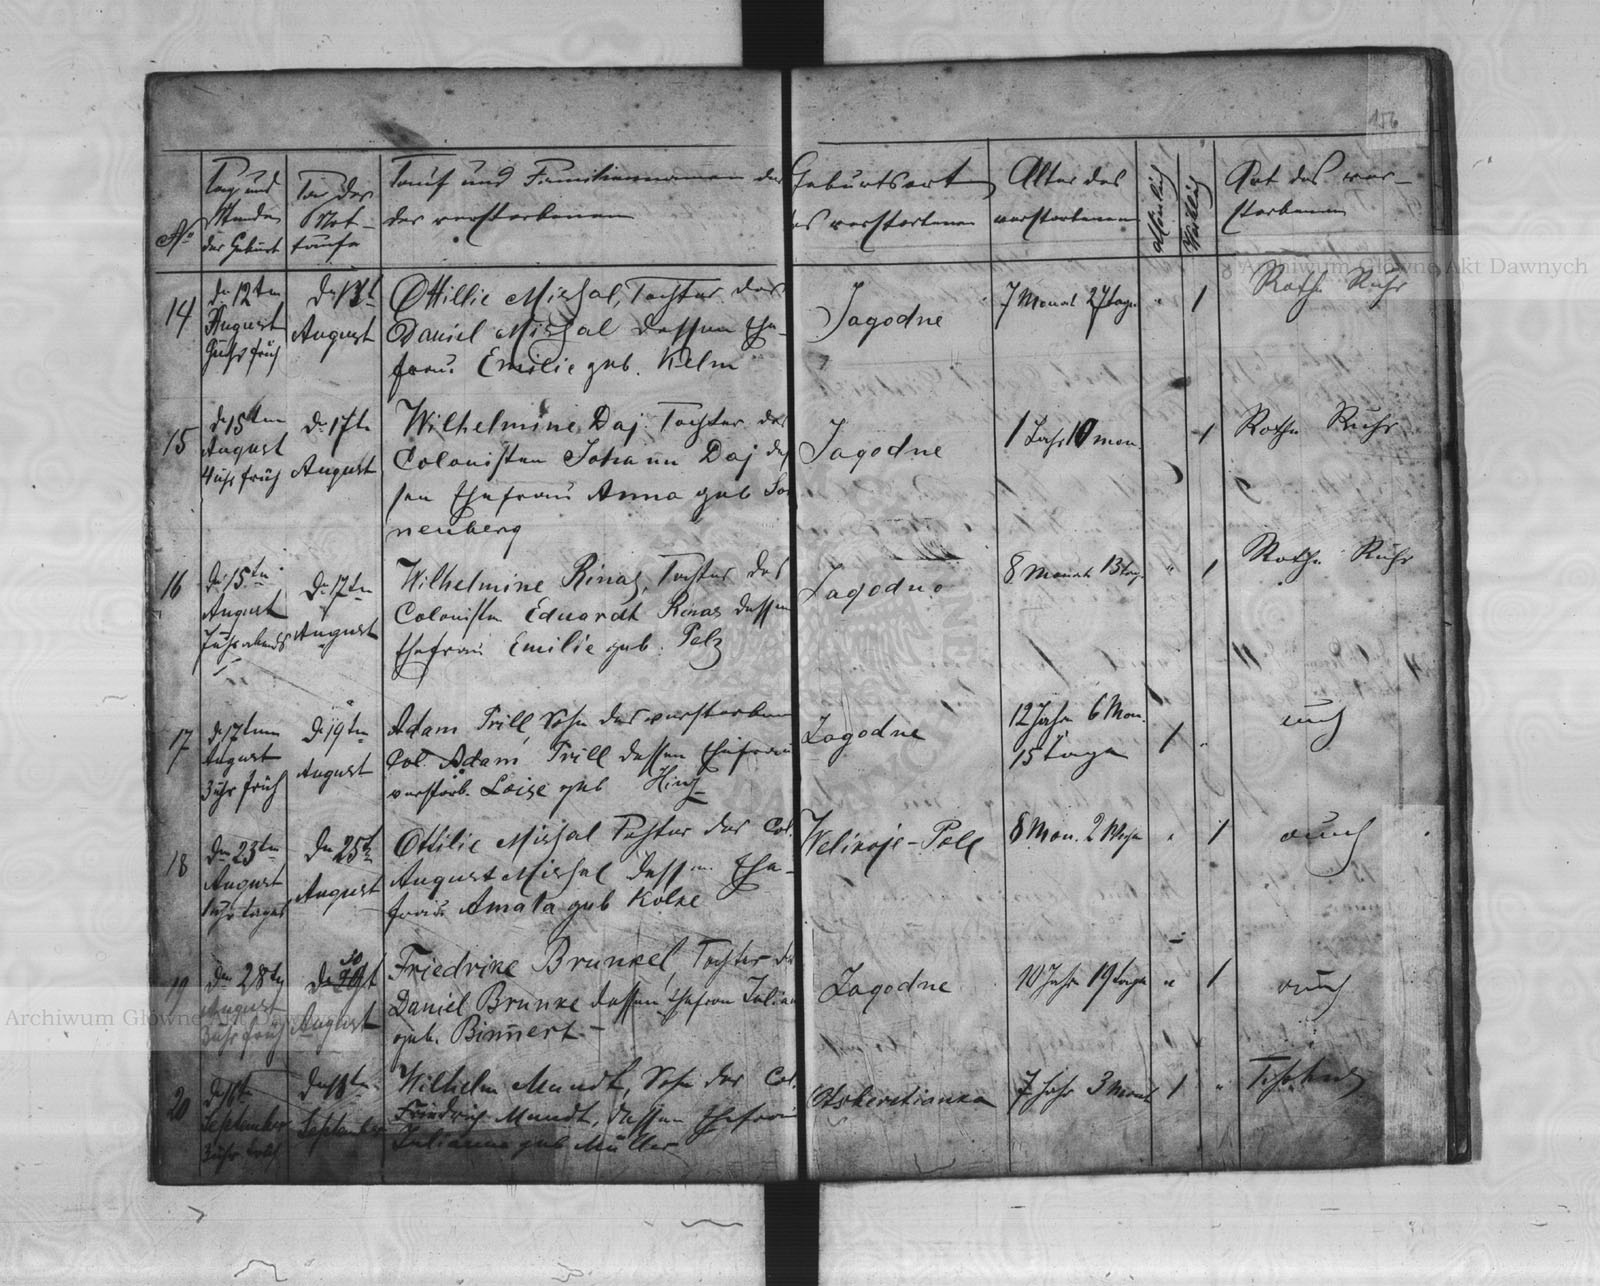 156
No
Tag und
Stunde
der Geburt
Tag der
Not-
taufe
Tauf und Familiennamen des
der verstorbenen
Geburtsort
des verstorbenen
Alter des
verstorbenen
Männlich
Weiblich
Art des ver-
storbenen
14
d. 12ten
August
Uhr früh
August
Ottillie Mischal, Tochter des
Daniel Mischal dessen Ehe-
frau Emilie geb. Kelm
Jagodne
7 Monat 27 tage
"
1
Rothe Ruhr
15
d. 15ten
August
4 uhr früh
D. 17te
August
Wilhelmine Daj Tochter des
Colonisten Johann Daj des
sen Ehefrau Anna geb Son
nenberg
Jagodne
1 Jahr 10 mon.
1
Rothe Ruhr
16
d. 15te
August
7 uhr abends
D. 17te
August
Wilhelmine Rinas, Tochter des
Colonisten Eduardt Rinas dessen
Ehefrau Emilie geb. Pelz
Jagodne
8 Monate 13 tag.
"
1
Rothe Ruhr
17
d. 17ten
August
3 uhr früh
D. 19te
August
Adam Prill, Sohn des verstorben
Col. Adam Prill dessen Ehefrau
verstorb. Loise geb Hinz
Jagodne
12 Jahre 6 Mon.
15 Tage
1
"
auch
18
Den 23te
August
1 uhr tages
Den 25te
August
Ottilie Mischal Tochter des Col.
August Mischel dessen Ehe-
frau Amata geb Kolke
Welikoje-Pole
8 Mon. 2 Woche
"
1
auch
19
Den 28te
August
3 uhr früh
August
Friedrike Brunkel, Tochter des
Daniel Brunke dessen Ehefrau Julian
geb. Binnert
Jagodne
10 Jahre 19 tage
"
1
auch
20
d. 16t
September
3 uhr früh
Den 18te
September
Wilhelm Mundt, Sohn des Col.
Friedrich Mundt, dessen Ehefrau
Julianna geb Müller
7 Jahr 3 Monat
1
"
Archiwum Główne Akt Dawnych
Archiwum Główne Akt Dawnych